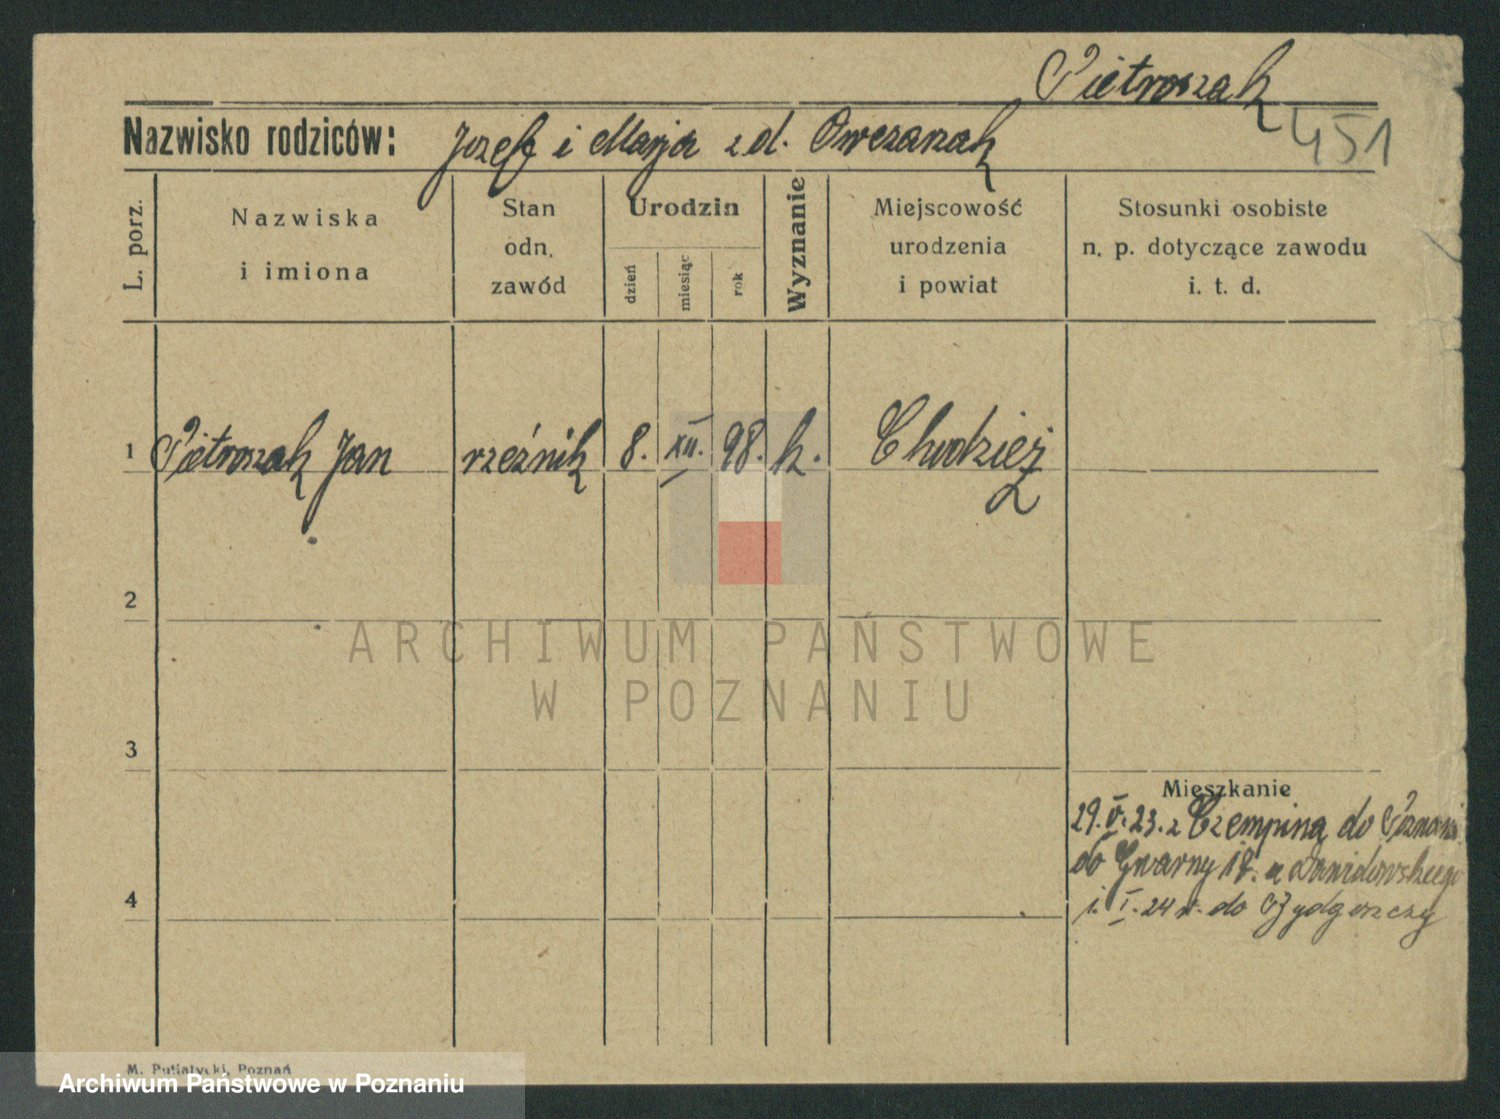 Pietroszak
Nazwisko rodziców: Jozef i Marja z d. Owczarzak 451
L. porz.
Nazwiska
i imiona
Stan
odn.
zawód
Urodzin
dzień
miesiąc
rok
Wyznanie
Miejscowość
urodzenia
i powiat
Stosunki osobiste
n. p. dotyczące zawodu
i. t. d.
1 Pietroszak Jan rzeźnik 8. XII. 98. k. Chodzież
2
ARCHIWUM PAŃSTWOWE
W POZNANIU
3
Mieszkanie
29. V. 23. z Czempina do Poznania
do Gwarny 18. u Dawidowskiego
4
1. I. 24 r. do Bydgoszczy
M. Putiatycki, Poznań
Archiwum Państwowe w Poznaniu